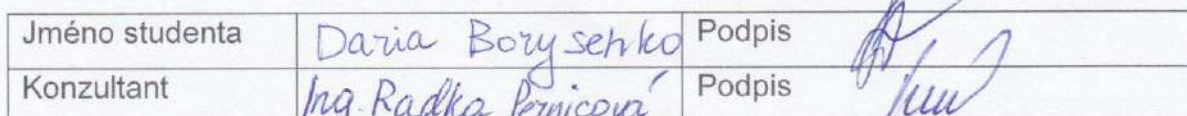 Jméno studenta Daria Borysenko Podpis
Konzultant Ing. Radka Pernicová Podpis